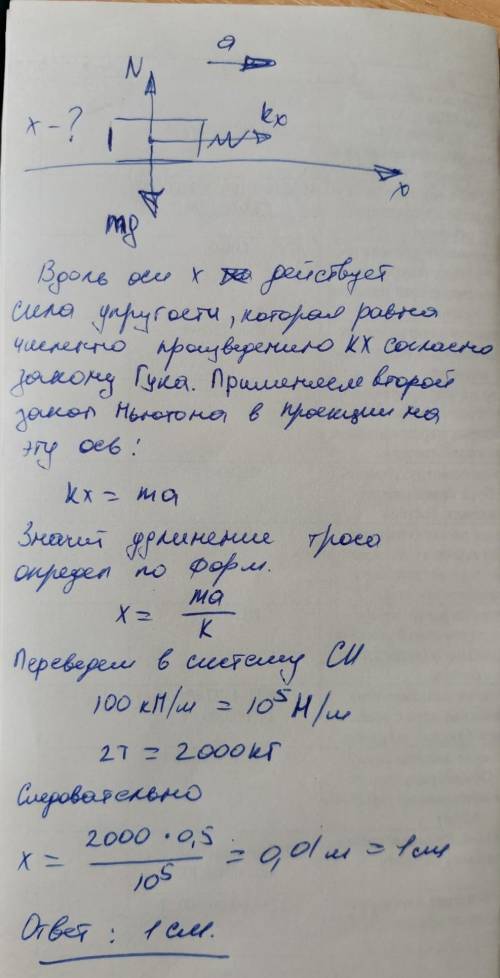 a
N
x - ?
kx
x
mg
Вдоль оси x действует
сила упругости, которая равна
численно произведению kx согласно
закону Гука. Применяем второй
закон Ньютона в проекции на
эту ось:
kx = ma
Значит удлинение троса
определ по форм.
x = ma / k
Переведем в систему СИ
100 кН/м = 10⁵ Н/м
2т = 2000кг
Следовательно
x = 2000 · 0,5 / 10⁵ = 0,01 м = 1 см
Ответ: 1 см.